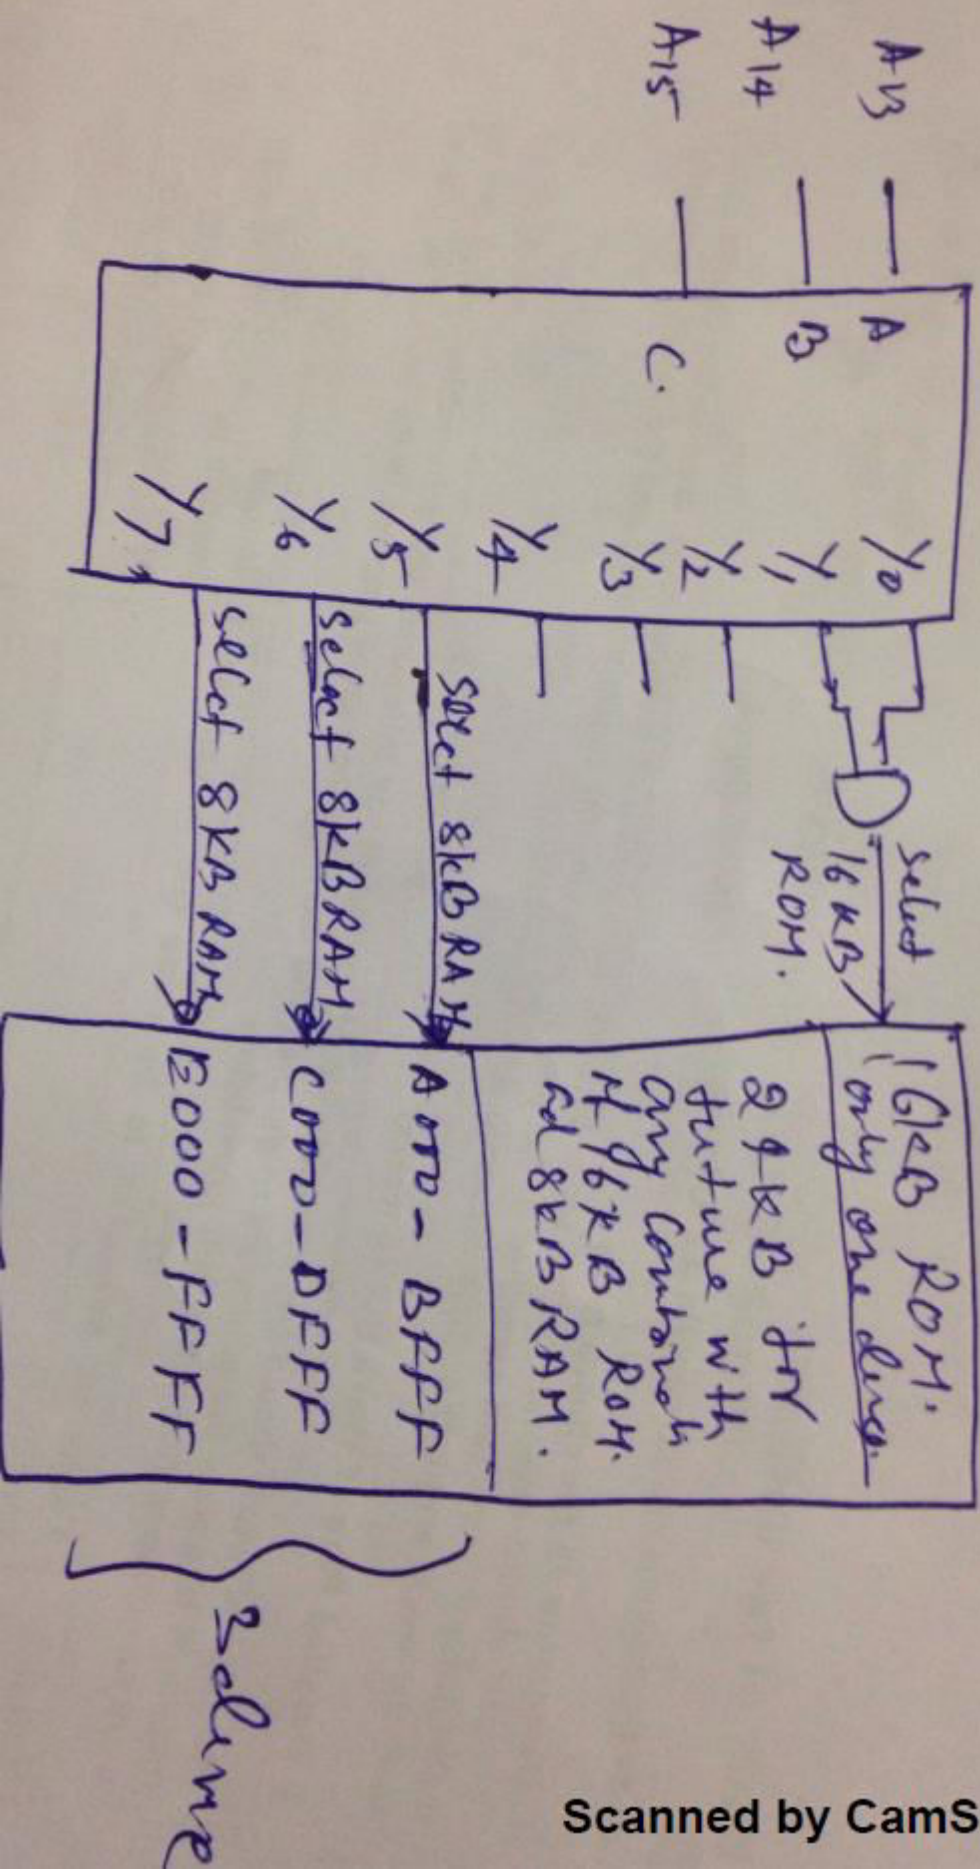 A13
A14
A15
A
B
C.
Y0
Y1
Y2
Y3
Y4
Y5
Y6
Y7
Select
16KB
ROM.
Select 8KB RAM
Select 8KB RAM
Select 8KB RAM
16KB ROM.
only one
24KB for
future with
any
of 16KB ROM.
8KB RAM.
A000 - BFFF
C000 - DFFF
E000 - FFFF
3
Scanned by CamS